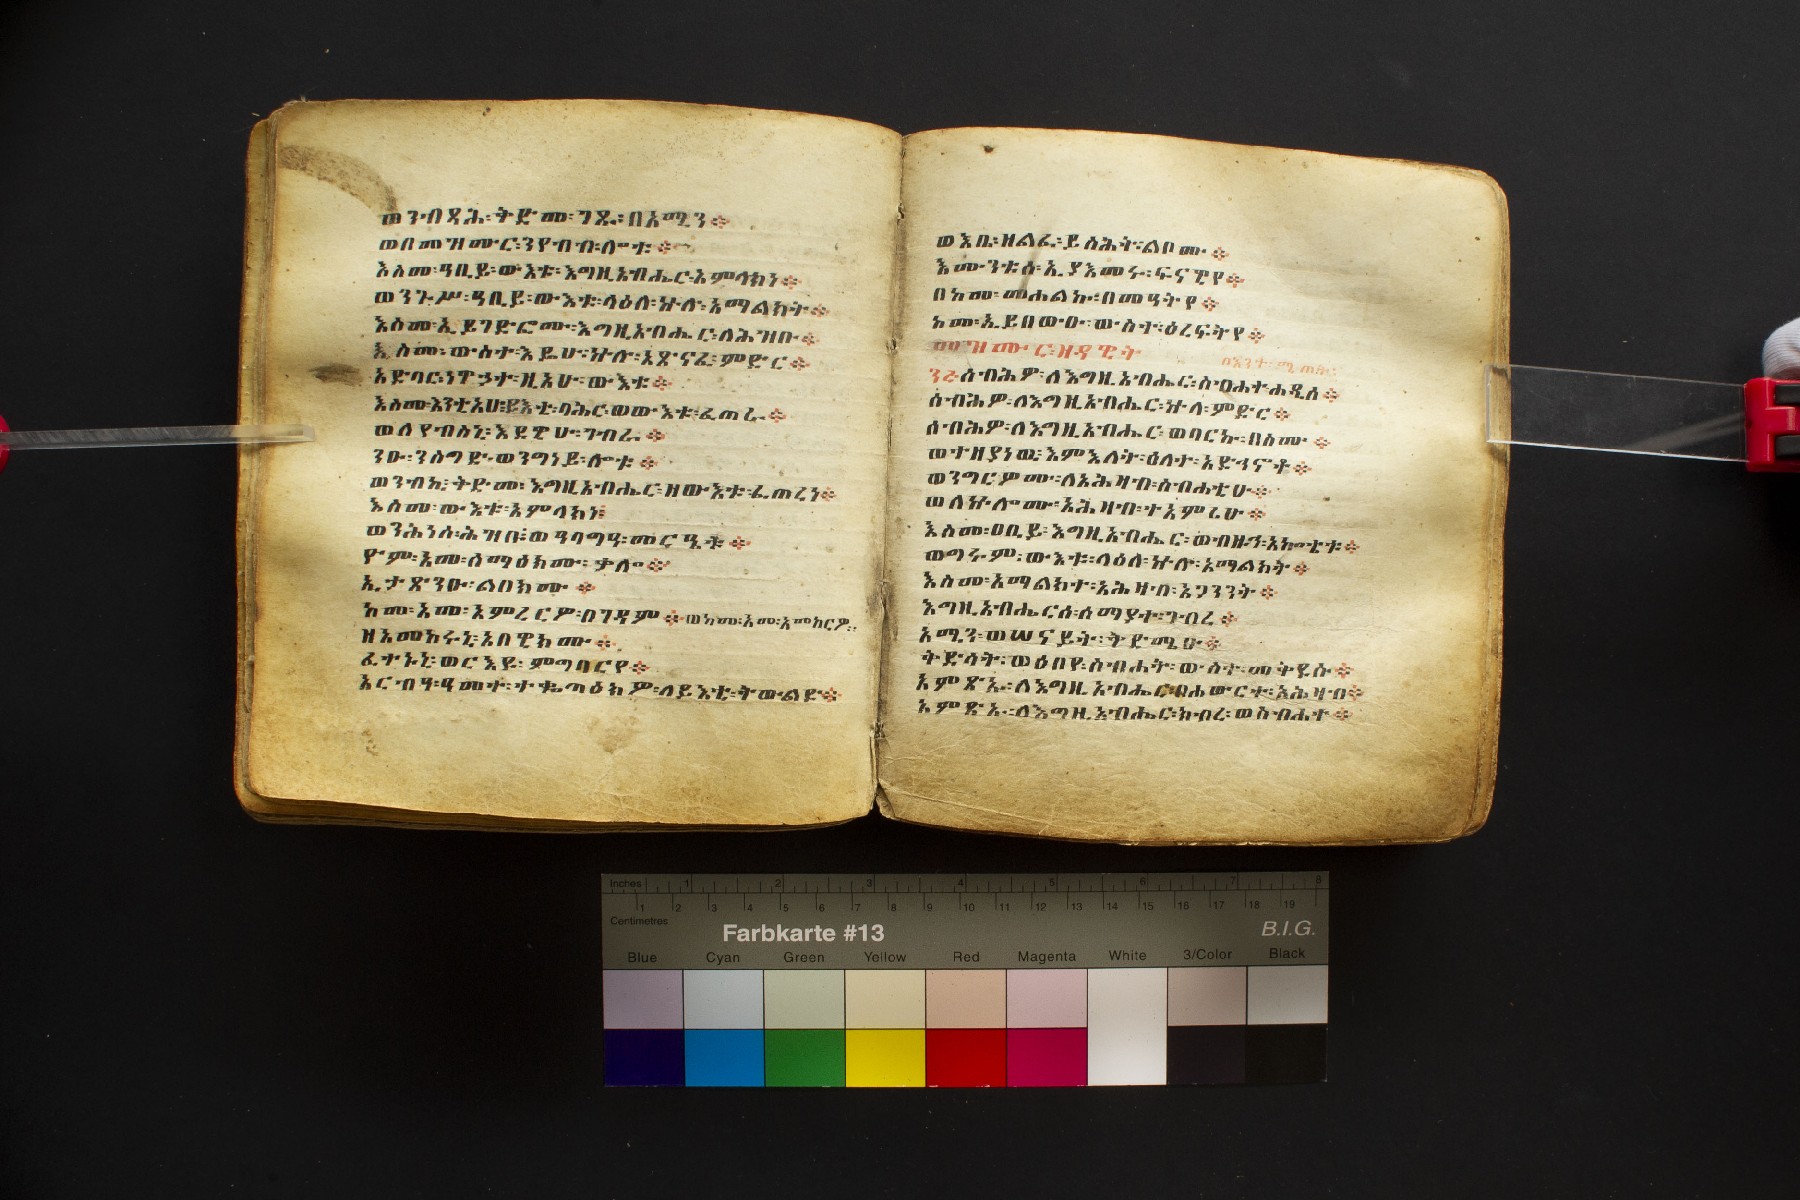 ወንብጻሕ፡ቅድመ፡ገጹ፡በአሚን፨
ወበመዝሙር፡ንየብብ፡ሎቱ፨
እስመ፡ዓቢይ፡ውእቱ፡እግዚአብሔር፡አምላክነ፨
ወንጉሥ፡ዓቢይ፡ውእቱ፡ላዕለ፡ኵሉ፡አማልክት፨
እስመ፡ኢይገድፎሙ፡እግዚአብሔር፡ለሕዝቡ፨
እስመ፡ውስተ፡እዴሁ፡ኵሉ፡አጽናፈ፡ምድር፨
አድባር፡ነዋኃት፡ዚአሁ፡ውእቱ፨
እስመ፡እንቲአሁ፡ይእቲ፡ባሕር፡ወውእቱ፡ፈጠራ፨
ወለየብስኒ፡እደዊሁ፡ገብራ፨
ንዑ፡ንስግድ፡ወንግነይ፡ሎቱ፨
ወንብኪ፡ቅድመ፡እግዚአብሔር፡ዘውእቱ፡ፈጠረነ፨
እስመ፡ውእቱ፡አምላክነ፨
ወንሕነሰ፡ሕዝቡ፡ወዓባግዓ፡መርዔቱ፨
ዮም፡እመ፡ሰማዕክሙ፡ቃሎ፨
ኢታጽንዑ፡ልበክሙ፨
ከመ፡አመ፡አምረርዎ፡በገዳም፨ወከመ፡አመ፡አመከርዎ፡፡
ዘአመከሩኒ፡አበዊክሙ፨
ፈተኑኒ፡ወርእዩ፡ምግባርየ፨
አርብዓ፡ዓመተ፡ተቈጣዕክዎ፡ለይእቲ፡ትውልድ፨
ወእቤ፡ዘልፈ፡ይስሕት፡ልቦሙ፨
እሙንቱሰ፡ኢያእመሩ፡ፍናዊየ፨
በከመ፡መሐልኩ፡በመዓትየ፨
ከመ፡ኢይበውኡ፡ውስተ፡ዕረፍትየ፨
መዝሙር፡ዘዳዊት
ሰብሕዎ፡ለእግዚአብሔር፡ስብሐተ፡ሐዲሰ፨
ሰብሕዎ፡ለእግዚአብሔር፡ኵላ፡ምድር፨
ሰብሕዎ፡ለእግዚአብሔር፡ወባርኩ፡በስሙ፨
ወተዘያነዉ፡እምዕለት፡ዕለተ፡አድኅኖቶ፨
ወንግርዎሙ፡ለአሕዛብ፡ስብሐቲሁ፨
ወለኵሎሙ፡አሕዛብ፡ተአምሪሁ፨
እስመ፡ዐቢይ፡እግዚአብሔር፡ወብዙኅ፡አኰቴቱ፨
ወግሩም፡ውእቱ፡ላዕለ፡ኵሉ፡አማልክት፨
እስመ፡አማልክተ፡አሕዛብ፡አጋንንት፨
እግዚአብሔርሰ፡ሰማያተ፡ገብረ፨
አሚን፡ወሠናይት፡ቅድሜሁ፨
ቅድሳት፡ወዕበየ፡ስብሐት፡ውስተ፡መቅደሱ፨
አምጽኡ፡ለእግዚአብሔር፡በሐውርተ፡አሕዛብ፨
አምጽኡ፡ለእግዚአብሔር፡ክብረ፡ወስብሐተ፨
Inches 1 2 3 4 5 6 7 8
1 2 3 4 5 6 7 8 9 10 11 12 13 14 15 16 17 18 19
Centimetres
Farbkarte #13
B.I.G.
Blue Cyan Green Yellow Red Magenta White 3/Color Black